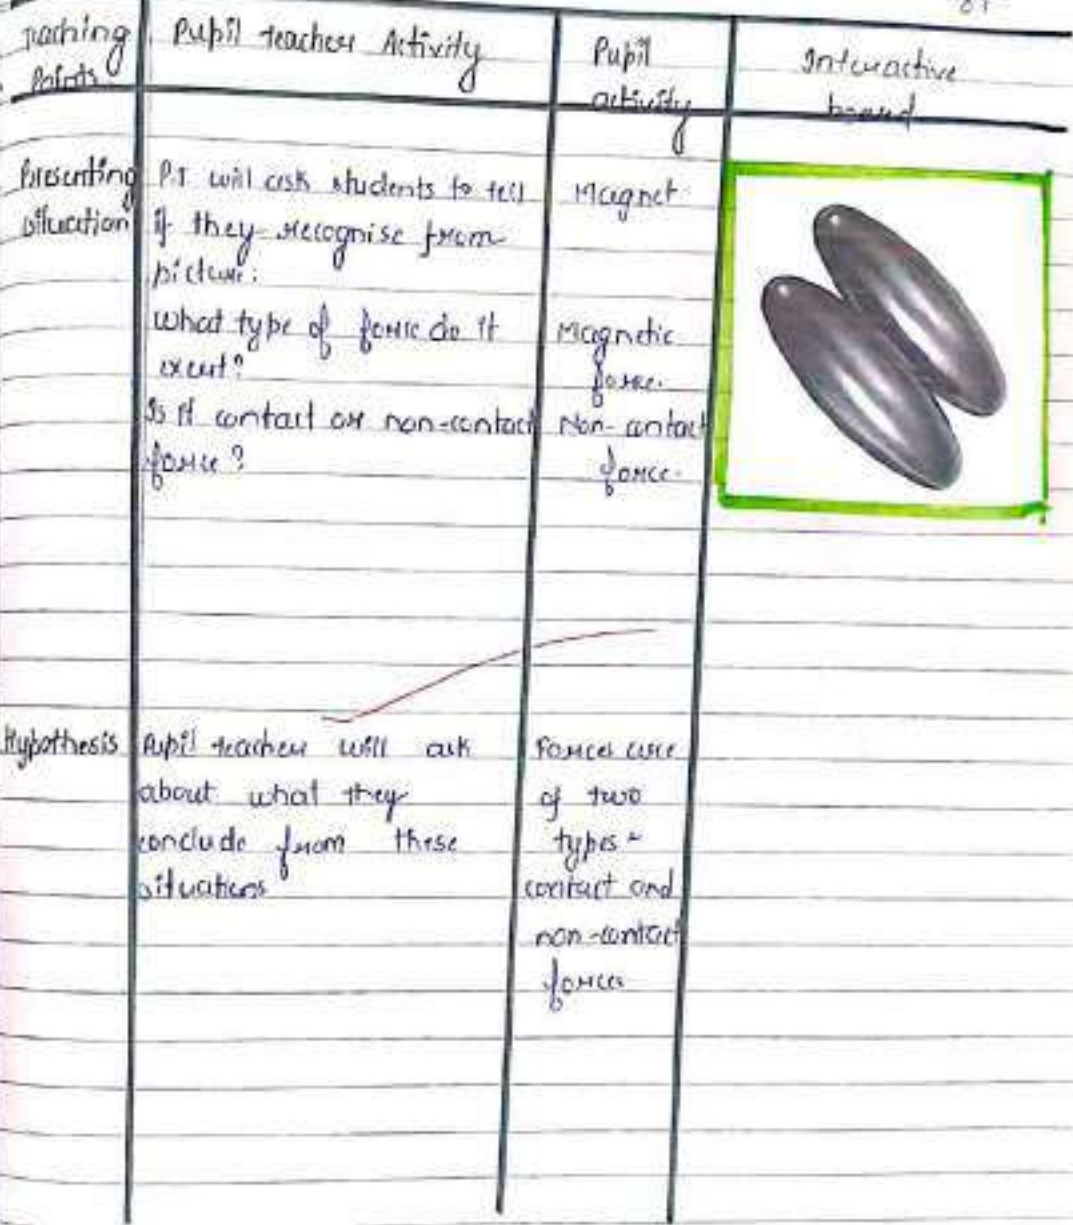 Teaching Points
Pupil teacher Activity
Pupil activity
Interactive board
Presenting situation
P.T will ask students to tell
if they recognise from
picture.
What type of force do it
exert?
Is it contact or non-contact
force?
Magnet
Magnetic
force.
Non-contact
force.
Hypothesis
Pupil teacher will ask
about what they
conclude from these
situations
Forces are
of two
types-
contact and
non-contact
forces